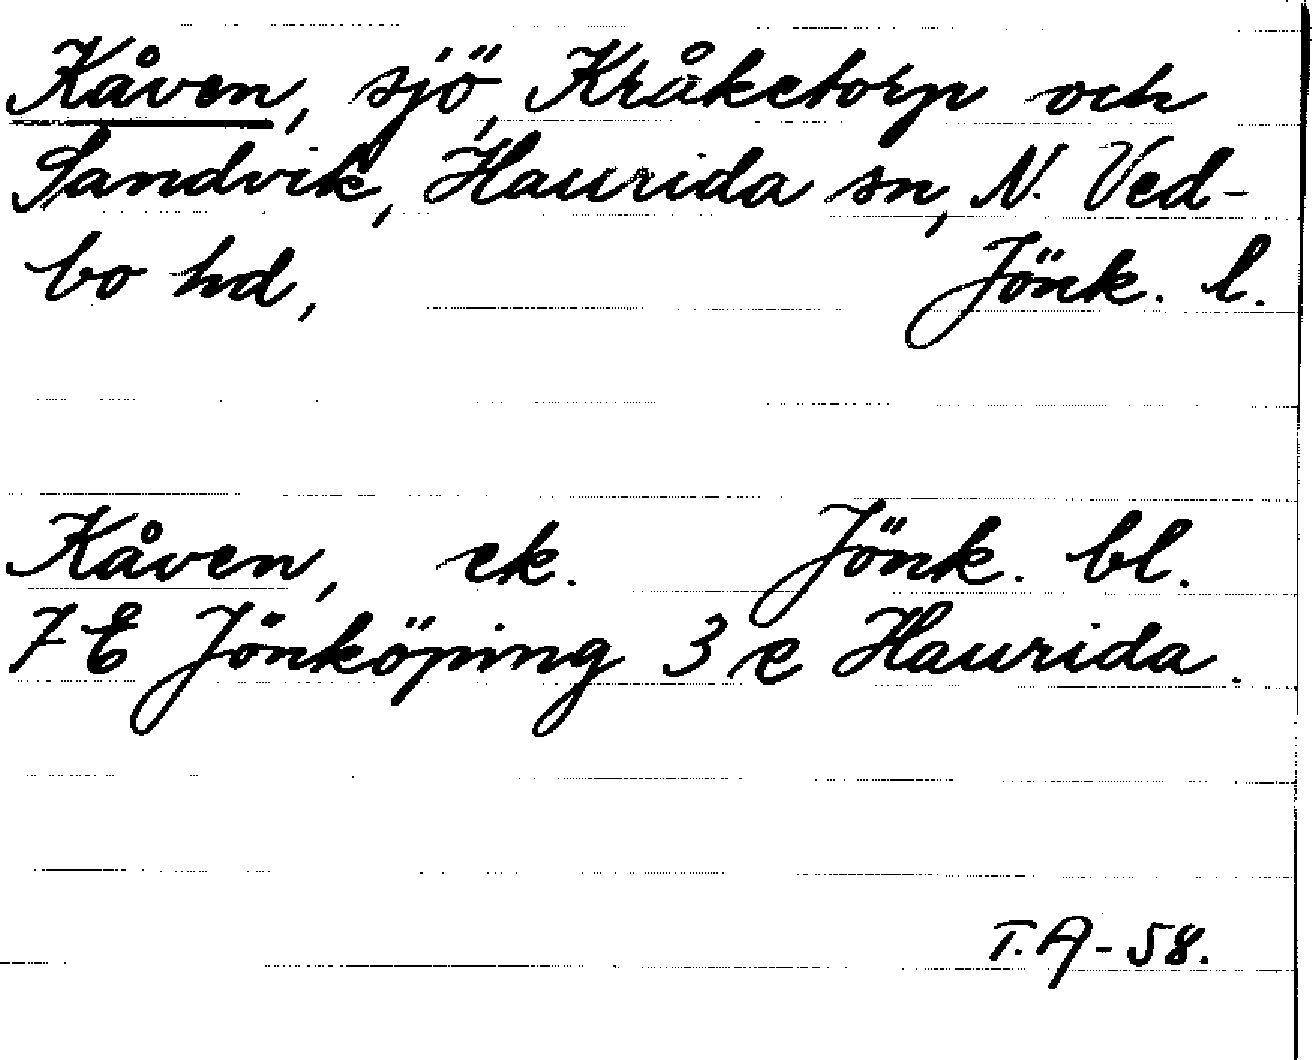 Kåven, sjö, Kråketorp och
Sandvik, Haurida sn, N. Ved-
bo hd, Jönk. l.
Kåven, ek. Jönk. bl.
7 E Jönköping 3 e Haurida.
T.A-58.